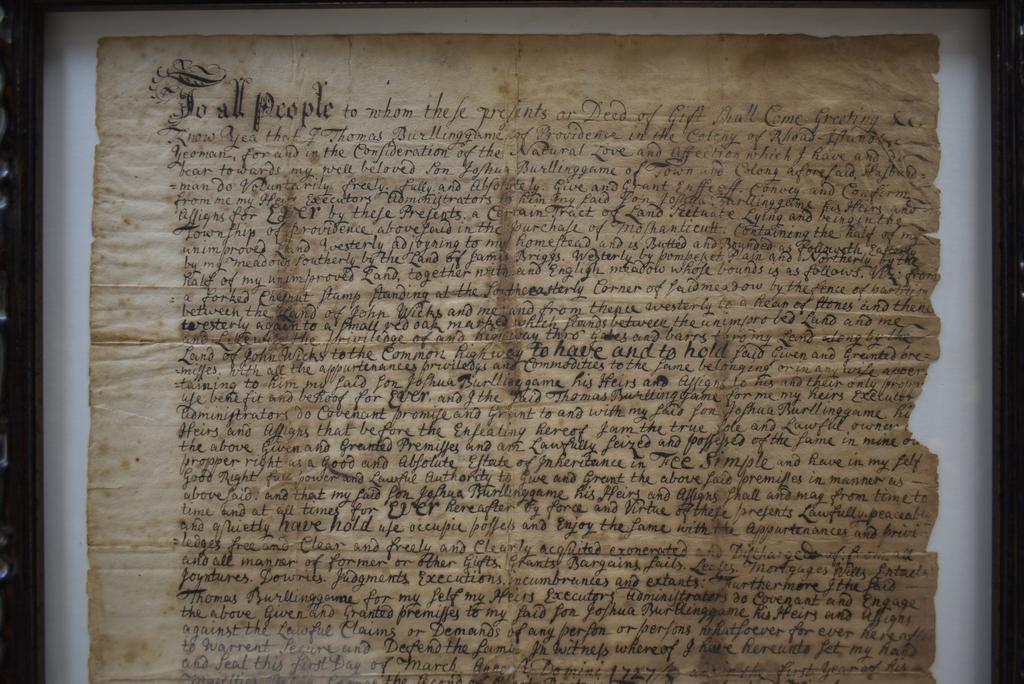 To all People to whom these presents or Deed of Gift Shall Come Greeting &c.
Know Yea that I Thomas Burllinggame of Providence in the Colony of Rhoad-Island
Yeoman, for and in the Consideration of the Natural Love and Affection which I have and do
bear towards my well beloved Son Joshua Burllinggame of Town and Colony aforesaid, Husband-
=man do Voluntarily freely, fully and Absolutely. Give and Grant Enffeoff. Convey and Conferm
from me my Heirs Executors Administrators to him my said Son Joshua Burllinggame his Heirs and
Assigns for Ever by these Presents. a Certain Tract of Land Scituate Lying and being in the
Township of providence abovesaid in the purchase of Moshanticutt. Containing the half of my
unimproved Land Westerly Adjoyning to my homestead and is Butted and Bounded as Followeth Easterly
by my meadow Southerly by the Land of James Briggs. Westerly by pompeket Plain and Northerly by the
half of my unimproved Land, together with and English meadow whose bounds is as follows. Viz. from
a forked Chesnut stamp standing at the Southeasterly Corner of saidmeadow by the fence of
between the Land of John Wicks and me and from thence westerly to a heap of stones and thence
westerly again to a small red oak marked which stands between the unimproved Land and me
and Likewise the priviledge of and high way thro' Gates and barrs thro my Land along by the
Land of John Wicks to the Common high way to have and to hold said Given and Granted pre=
=misses, with all the appurtenances priviledges and Commodities to the same belonging or in any wise apper=
=taining to him my said son Joshua Burllinggame his Heirs and Assigns to his and their only proper
use benefit and behoof for Ever, and I the said Thomas Burllinggame for me my heirs Executors
Administrators do Covenant promise and Grant to and with my said son Joshua Burllinggame his
Heirs and Assigns that before the Ensealing hereof I am the true sole and Lawful owner
the above Given and Granted Premisses and am Lawfully seized and possessed of the same in mine ow
propper right as a Good and Absolute Estate of Inheritance in Fee. Simple and have in my self
Good Right full power and Lawful Authority to Give and Grant the above said premisses in manner as
abovesaid. and that my said son Joshua Burllinggame his Heirs and Assigns shall and may from time to
time and at all times for Ever hereafter by force and Virtue of these presents Lawfully. peaceably
and quietly have hold use occupie possess and Enjoy the same with the Appurtenances and privi=
=ledges free and Clear and freely and Clearly acquited exonerated and Discharged of, from all
and all manner of former or other Gifts, Grants, Bargains, sails. Leases, Mortgages Wills, Entails
Joyntures. Dowries. Judgments Executions, incumbranies and extants. Furthermore I the said
Thomas Burllinggame for my self my Heirs Executors Administrators do Covenant and Engage
the above Given and Granted premisses to my said son Joshua Burllinggame his Heirs and Assigns
against the Lawful Claims or Demands of any person or persons whatsoever for ever hereafter
to Warrent Secure and Defend the same. In Witness where of I have hereunto set my hand
and Seal this first Day of March. Anno Domini 1727/8 and in the first Year of his
the Second of